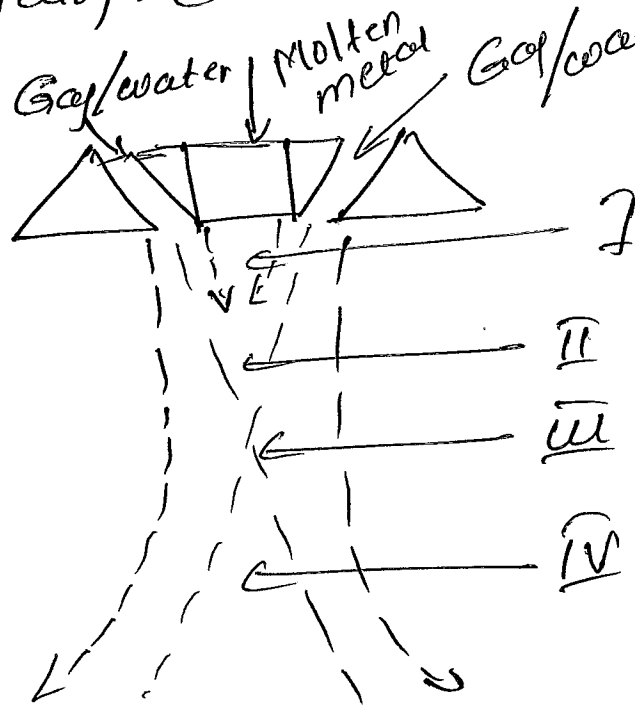 Gas/water
Molten
metal
Gas/wa
I
II
III
IV